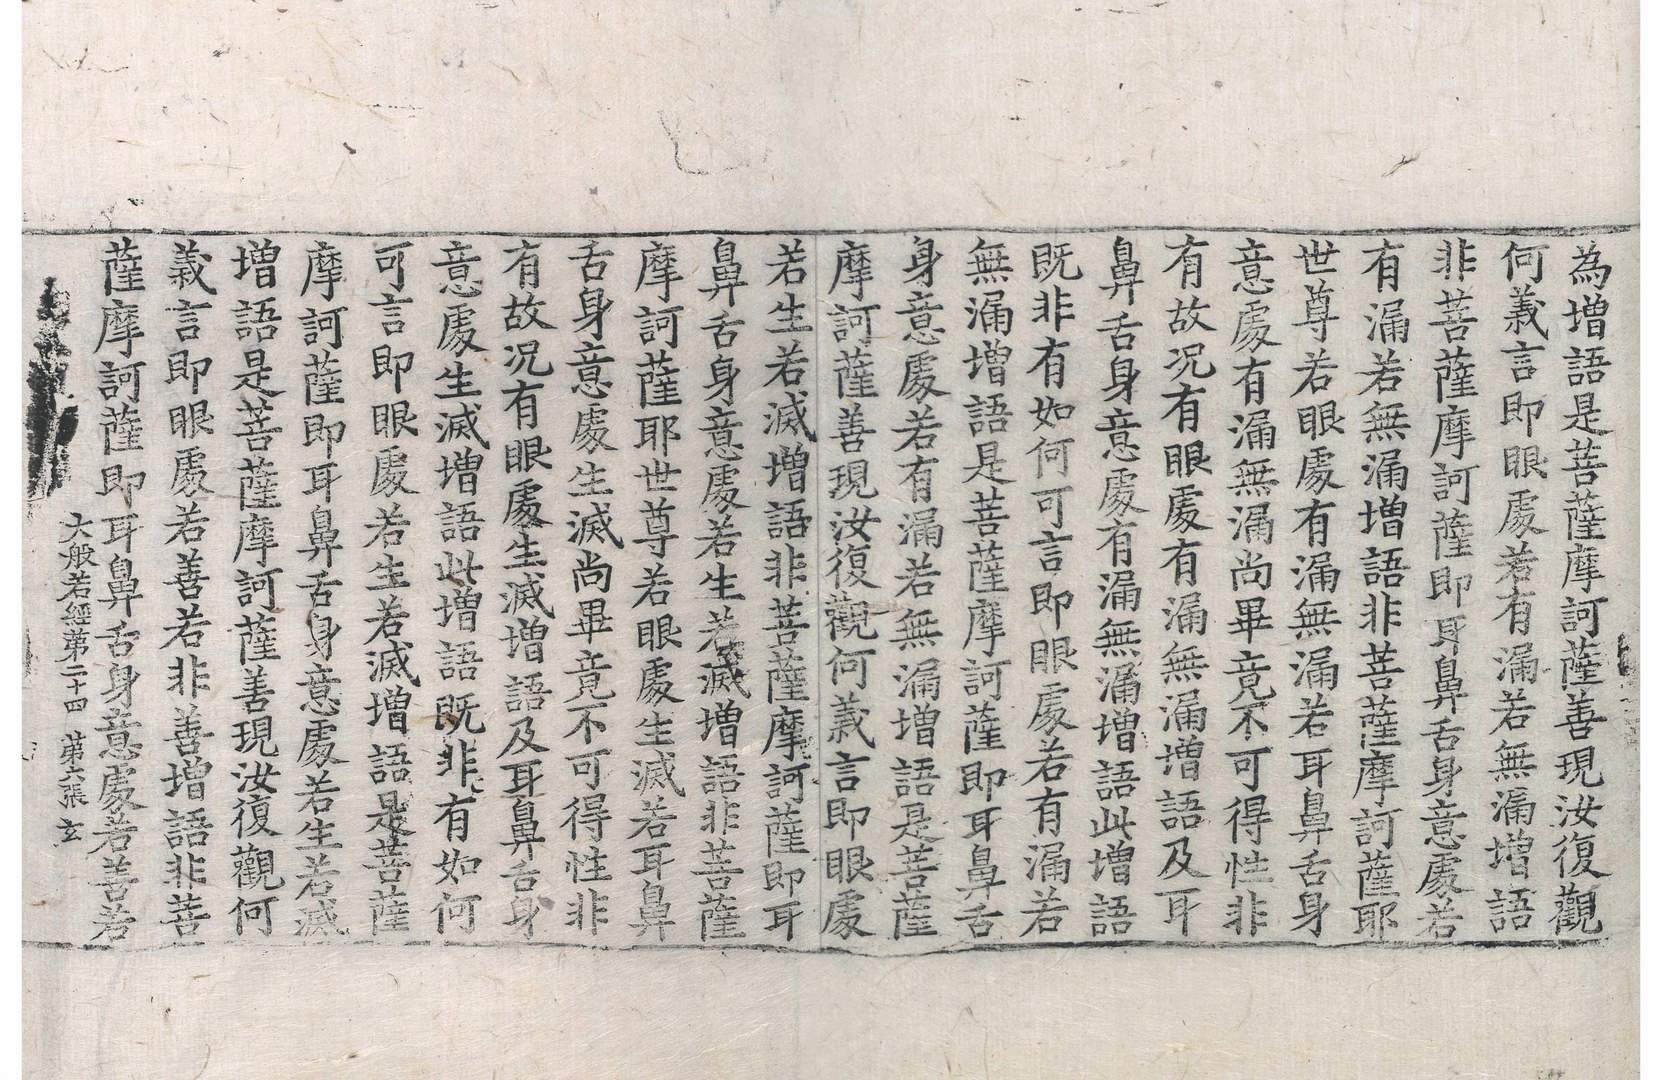 為增語是菩薩摩訶薩善現汝復觀
何義言即眼處若有漏若無漏增語
非菩薩摩訶薩即耳鼻舌身意處若
有漏若無漏增語非菩薩摩訶薩耶
世尊若眼處有漏無漏若耳鼻舌身
意處有漏無漏尚畢竟不可得性非
有故況有眼處有漏無漏增語及耳
鼻舌身意處有漏無漏增語此增語
既非有如何可言即眼處若有漏若
無漏增語是菩薩摩訶薩即耳鼻舌
身意處若有漏若無漏增語是菩薩
摩訶薩善現汝復觀何義言即眼處
若生若滅增語非菩薩摩訶薩即耳
鼻舌身意處若生若滅增語非菩薩
摩訶薩耶世尊若眼處生滅若耳鼻
舌身意處生滅尚畢竟不可得性非
有故況有眼處生滅增語及耳鼻舌身
意處生滅增語此增語既非有如何
可言即眼處若生若滅增語是菩薩
摩訶薩即耳鼻舌身意處若生若滅
增語是菩薩摩訶薩善現汝復觀何
義言即眼處若善若非善增語非菩
薩摩訶薩即耳鼻舌身意處若善若
大般若經第二十四 第六張 玄